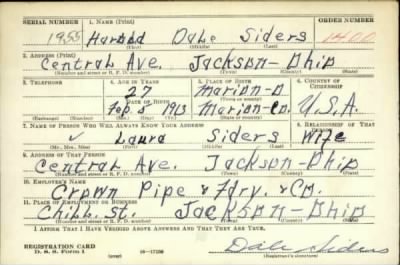 SERIAL NUMBER 1. NAME (Print) ORDER NUMBER
1955 Harold Dale Siders 1400
(First) (Middle) (Last)
2. ADDRESS (Print)
Central Ave. Jackson-Ohio
(Number and street or R. F. D. number) (Town) (County) (State)
3. TELEPHONE 4. AGE IN YEARS 5. PLACE OF BIRTH 6. COUNTRY OF CITIZENSHIP
27 Marion-O
DATE OF BIRTH (Town or county)
Feb. 5 1913 Marion-Co. U.S.A.
(Exchange) (Number) (Mo.) (Day) (Yr.) (State or country)
7. NAME OF PERSON WHO WILL ALWAYS KNOW YOUR ADDRESS 8. RELATIONSHIP OF THAT PERSON
✓ Laura Siders Wife
(Mr., Mrs., Miss) (First) (Middle) (Last)
9. ADDRESS OF THAT PERSON
Central Ave. Jackson-Ohio
(Number and street or R. F. D. number) (Town) (County) (State)
10. EMPLOYER'S NAME
Crown Pipe & Fdry. & Co.
11. PLACE OF EMPLOYMENT OR BUSINESS
Chill. St. Jackson-Ohio
(Number and street or R. F. D. number) (Town) (County) (State)
I AFFIRM THAT I HAVE VERIFIED ABOVE ANSWERS AND THAT THEY ARE TRUE.
REGISTRATION CARD
D. S. S. Form 1 (over) 16-17105 Dale Siders
(Registrant's signature)